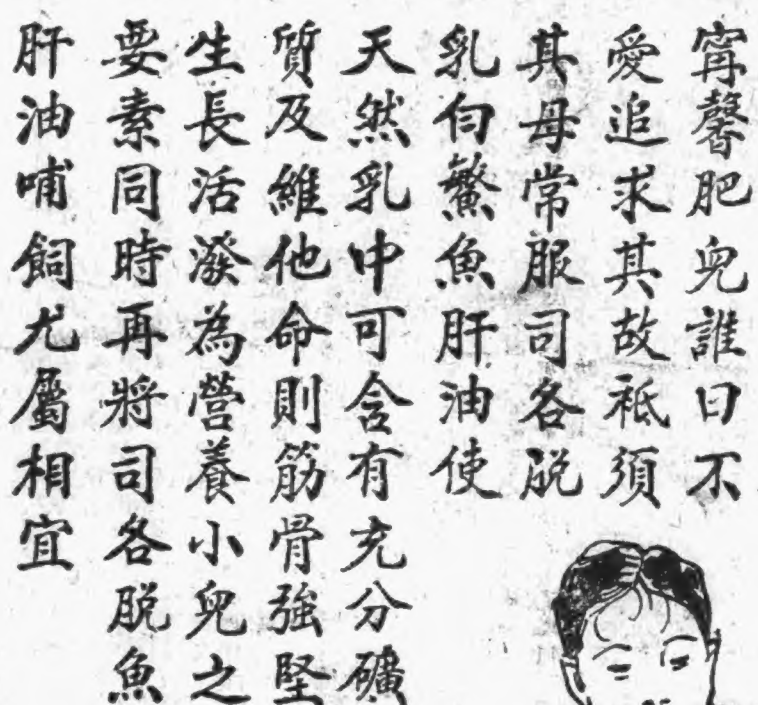 寗馨肥兒誰曰不
愛追求其故祗須
其母常服司各脱
乳白鰵魚肝油使
天然乳中可含有充分礦
質及維他命則筋骨強堅
生長活潑為營養小兒之
要素同時再將司各脱魚
肝油哺飼尤屬相宜